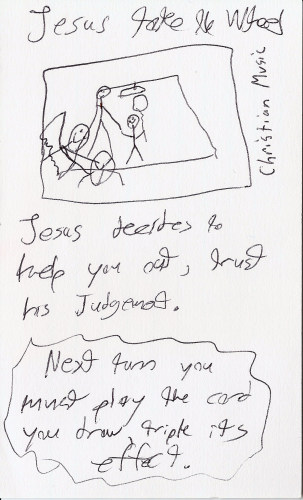 Jesus take the Wheel
Christian Music
Jesus decides to
help you out, trust
his Judgement.
Next turn you
must play the card
you draw, triple its
effect.